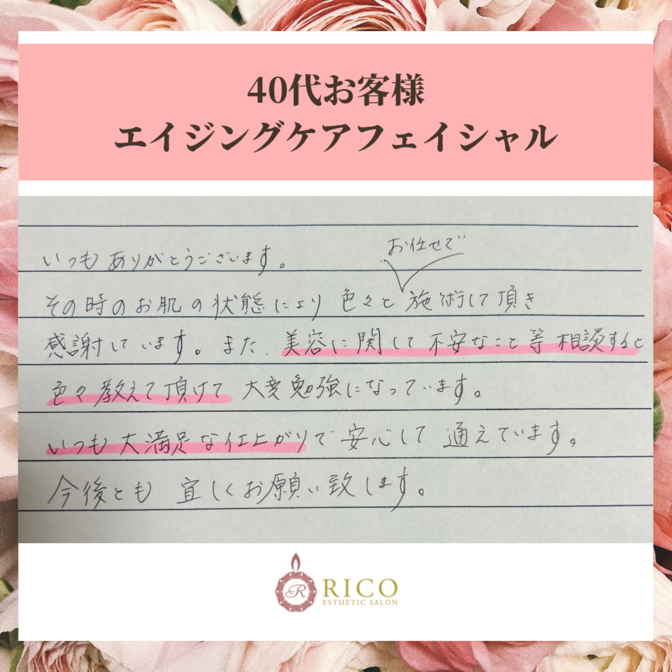 40代お客様
エイジングケアフェイシャル
いつもありがとうございます。
お任せで
その時のお肌の状態により色々と施術して頂き
感謝しています。また、美容に関して不安なこと等相談すると
色々教えて頂けて大変勉強になっています。
いつも大満足な仕上がりで安心して通えています。
今後とも宜しくお願い致します。
R RICO
ESTHETIC SALON